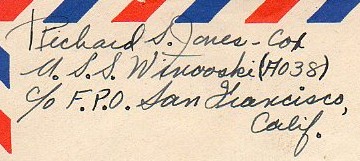 Richard S. Jones - Cox
U.S.S. Winooski (AO38)
c/o F.P.O. San Francisco,
Calif.